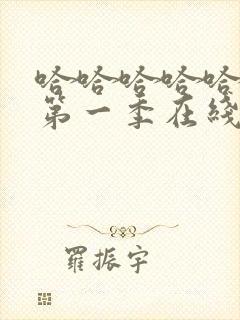 哈哈哈哈哈
第一季在綫
羅振宇